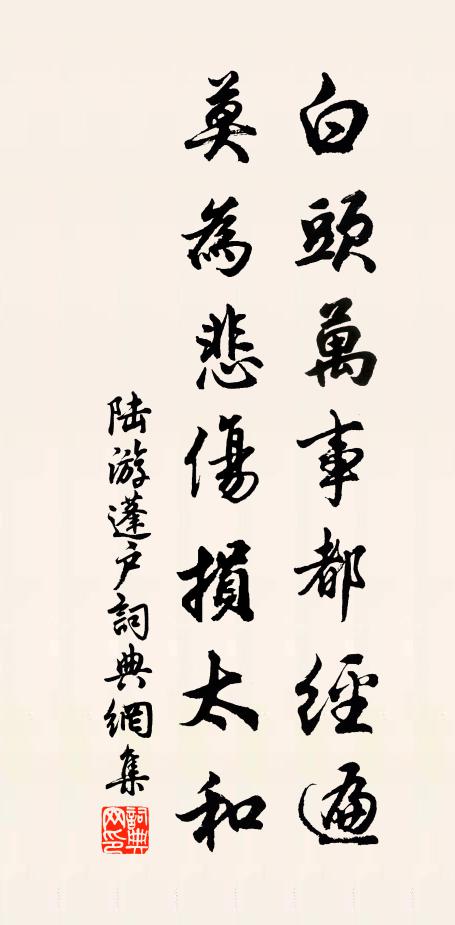 白頭萬事都經遍
莫為悲傷損太和
陸游蓬戶詞典網集
詞典網印